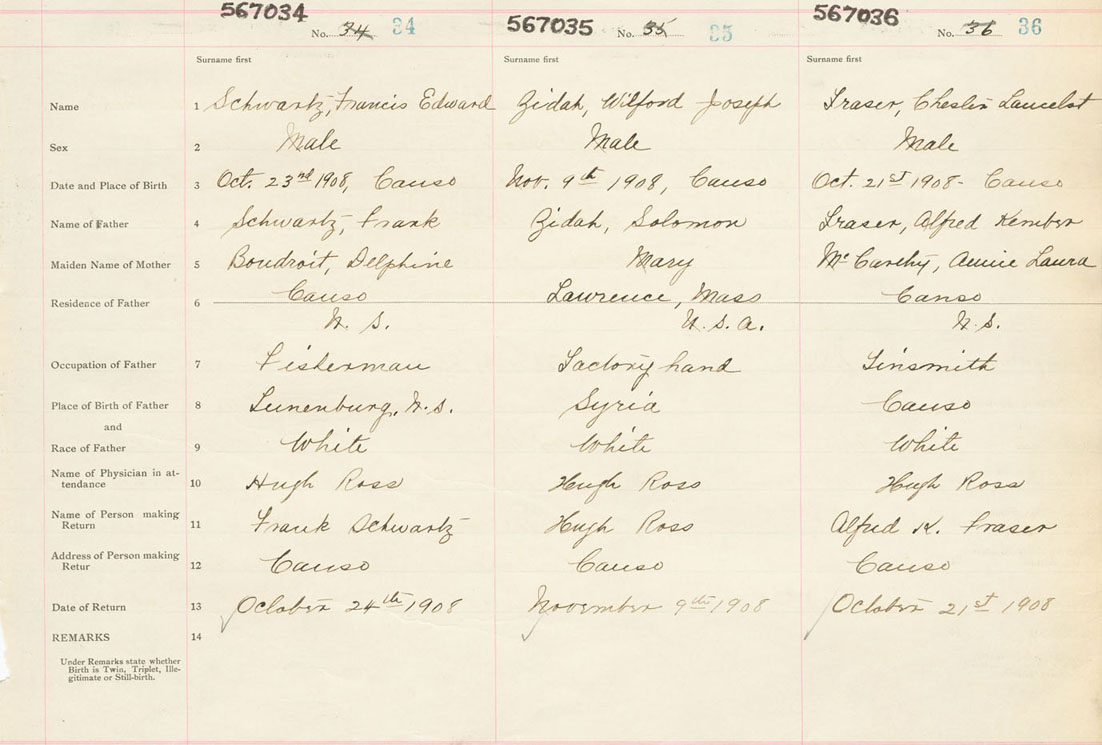 567034 567035 567036
No. 34 34 No. 35 35 No. 36 36
Surname first Surname first Surname first
Name 1 Schwartz, Francis Edward Zidah, Wilford Joseph Fraser, Cheslin Lancelot
Sex 2 Male Male Male
Date and Place of Birth 3 Oct. 23nd 1908, Canso Nov. 9th 1908, Canso Oct. 21st 1908 - Canso
Name of Father 4 Schwartz, Frank Zidah, Solomon Fraser, Alfred Kember
Maiden Name of Mother 5 Boudroit, Delphine Mary McCarthy, Annie Laura
Residence of Father 6 Canso Lawrence, Mass Canso
N. S. U. S. A. N. S.
Occupation of Father 7 Fisherman Factory hand Tinsmith
Place of Birth of Father 8 Lunenburg, N. S. Syria Canso
and
Race of Father 9 White White White
Name of Physician in at-
tendance 10 Hugh Ross Hugh Ross Hugh Ross
Name of Person making
Return 11 Frank Schwartz Hugh Ross Alfred K. Fraser
Address of Person making
Retur 12 Canso Canso Canso
Date of Return 13 October 24th 1908 November 9th 1908 October 21st 1908
REMARKS 14
Under Remarks state whether
Birth is Twin, Triplet, Ille-
gitimate or Still-birth.